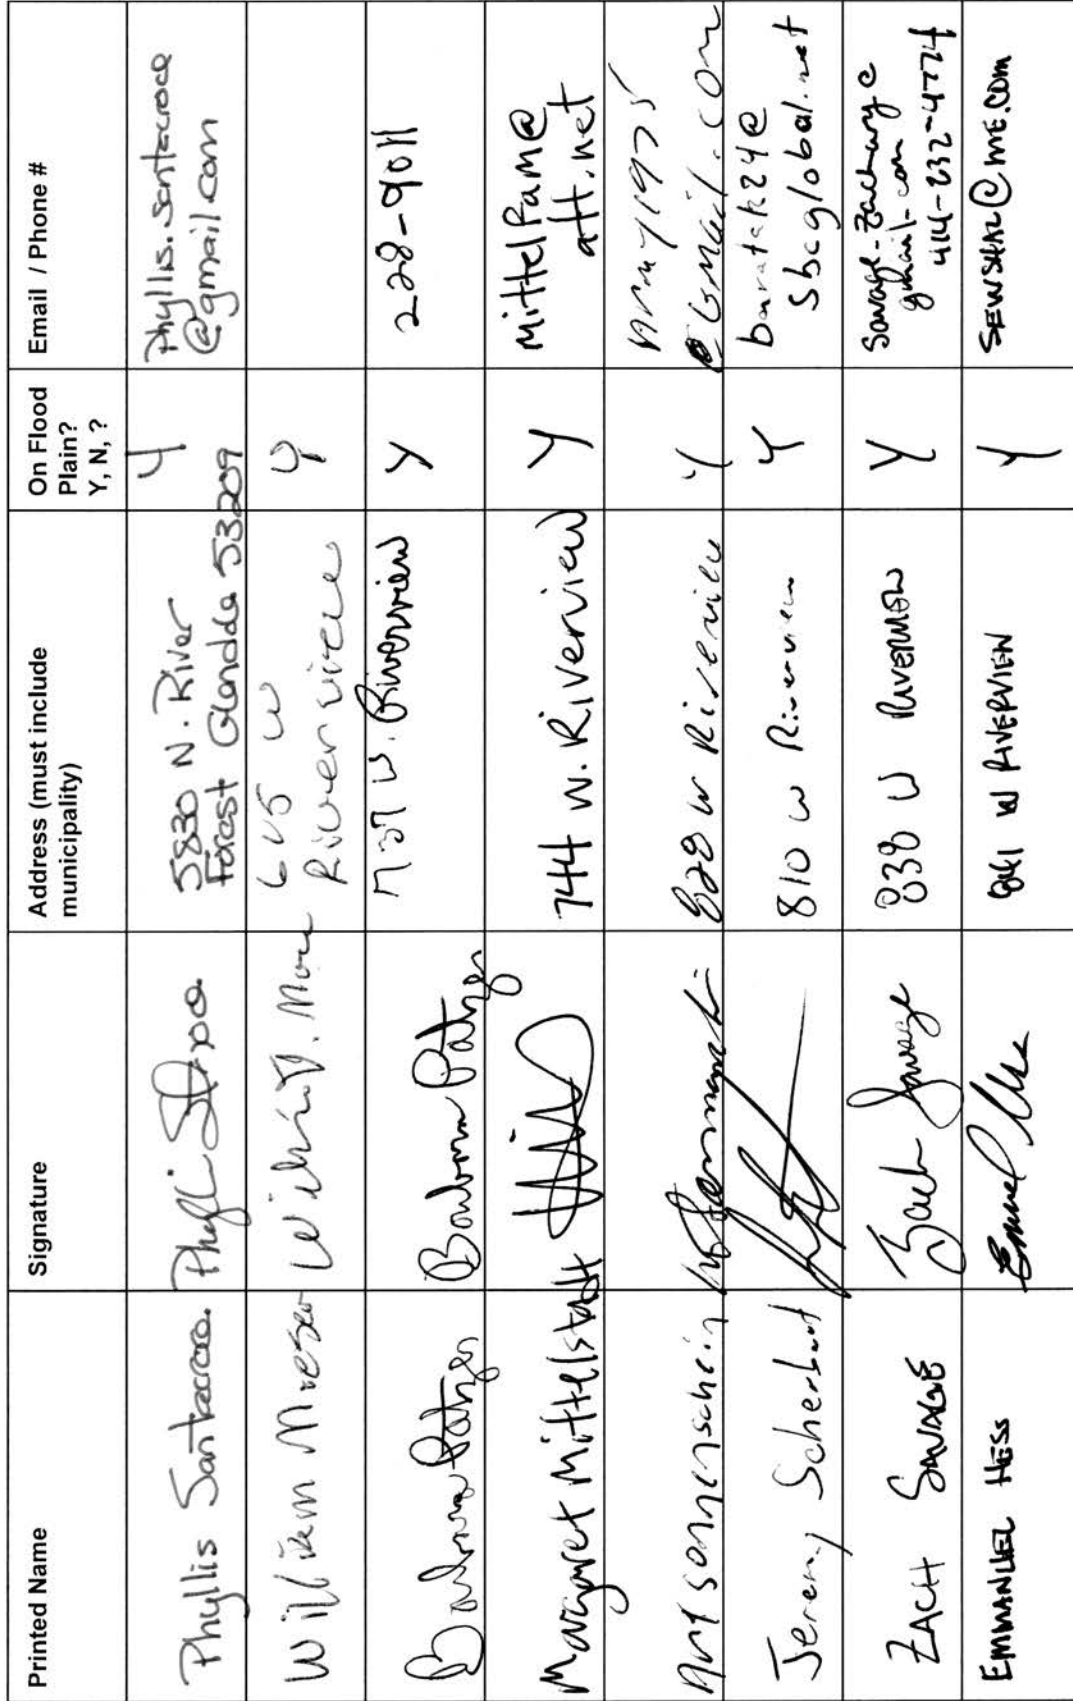 Printed Name
Signature
Address (must include
municipality)
On Flood
Plain?
Y, N, ?
Email / Phone #
Phyllis Santacroce
5830 N. River
Forest Glendale 53209
Y
Phyllis.santacroce
@gmail.com
William
W
Riverview
Y
Barbara
W. Riverview
Y
228-9011
Margaret Mittelstadt
744 W. Riverview
Y
Mittelfam@
att.net
Art Sonnenschein
828 W Riverview
Y
@Gmail.com
Jeremy
810 W Riverview
Y
baratak24@
sbcglobal.net
ZACH SAVAGE
Zach Savage
838 W RIVERVIEW
Y
Savage.Zachary@
gmail.com
414-232-4774
EMMANUEL HESS
841 W RIVERVIEW
Y
SEWSHAL@ME.COM